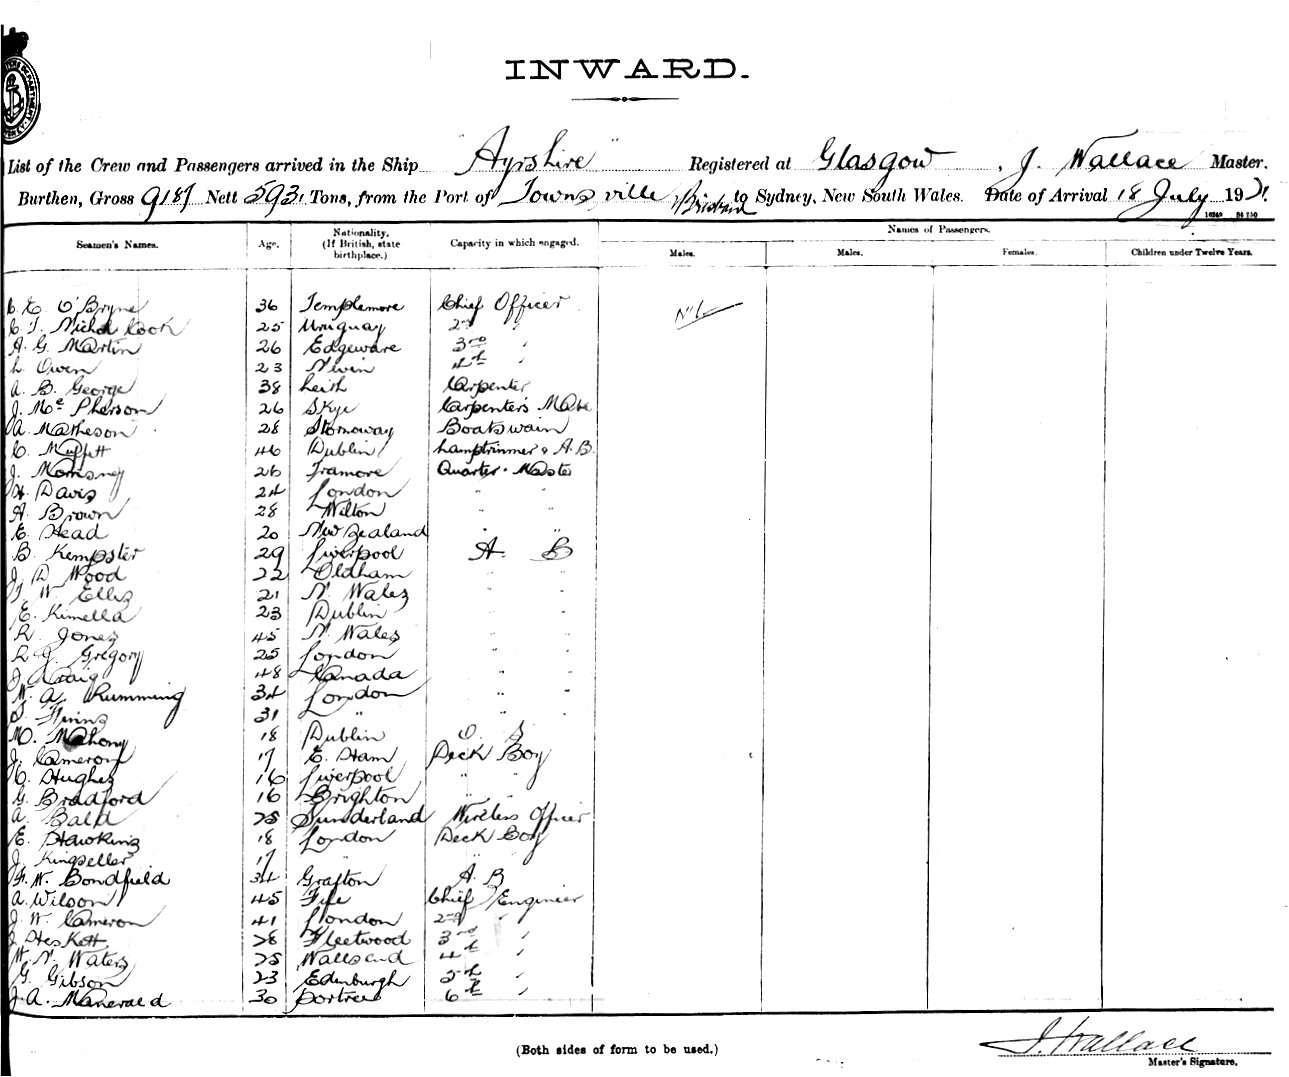 INWARD.
List of the Crew and Passengers arrived in the Ship "Ayrshire" Registered at Glasgow, J. Wallace Master.
Burthen, Gross 9187 Nett 5931 Tons, from the Port of Townsville Brisbane to Sydney, New South Wales. Date of Arrival 18 July 1921
16249 84 250
Names of Passengers.
Seamen's Names. Age. Nationality. (If British, state birthplace.) Capacity in which engaged. Males. Males. Females. Children under Twelve Years.
C. E. O'Bryne 36 Templemore Chief Officer Nil
C. T. Nichol Cook 25 Uruguay 2nd "
A. G. Martin 26 Edgeware 3rd "
L. Owen 23 Nevin 4th "
A. B. George 38 Leith Carpenter
J. McPherson 26 Skye Carpenter's Mate
A. Matheson 28 Stornoway Boatswain
C. Muffett 46 Dublin Lamptrimmer & A.B.
J. 26 Tramore Quarter-Master
H. Davis 24 London " "
A. Brown 28 Wilton " "
E. Head 20 New Zealand " "
B. Kempster 29 Liverpool A. B
J. D. Wood 22 Oldham " "
T. W. Ellis 21 N. Wales " "
E. Kinnella 23 Dublin " "
R. Jones 45 N. Wales " "
R. G. Gregory 25 London " "
J. Craig 48 Canada " "
W. A. Rumming 34 London " "
31 " " "
M. Mahony 18 Dublin O. S
J. Cameron 17 E. Ham Deck Boy
C. Hughes 16 Liverpool " "
G. Bradford 16 Brighton " "
A. Bald 25 Sunderland Wireless Officer
E. Hawkins 18 London Deck Boy
J. Kingseller 17 " "
F. W. Bondfield 34 Grafton A. B
A. Wilson 45 Fife Chief Engineer
J. W. Cameron 41 London 2nd "
J. Heskett 28 Fleetwood 3rd "
W. N. Waters 25 Wallsend 4th "
G. Gibson 23 Edinburgh 5th "
J. A. 30 Portree 6th "
(Both sides of form to be used.)
J. Wallace
Master's Signature.